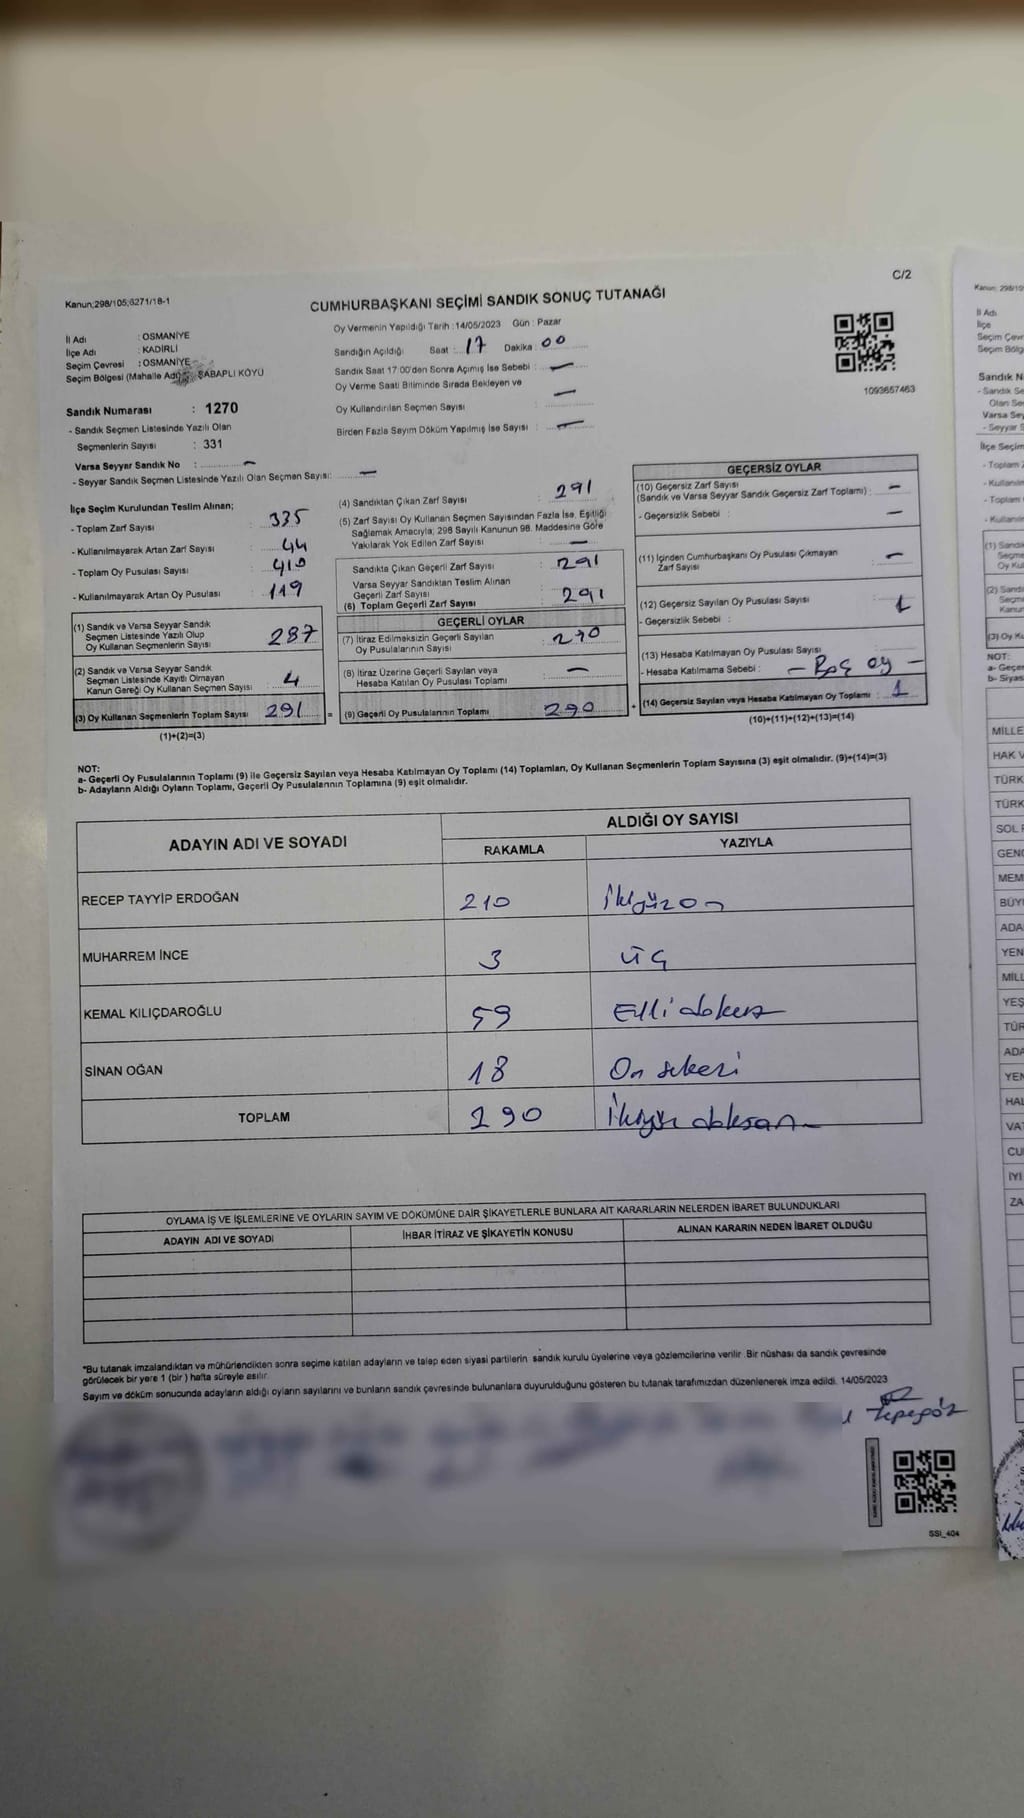 C/2
Kanun;298/105;6271/18-1
CUMHURBAŞKANI SEÇİMİ SANDIK SONUÇ TUTANAĞI
İl Adı : OSMANİYE
İlçe Adı : KADİRLİ
Seçim Çevresi : OSMANİYE
Seçim Bölgesi (Mahalle Adı) ŞABAPLI KÖYÜ
Sandık Numarası : 1270
- Sandık Seçmen Listesinde Yazılı Olan
Seçmenlerin Sayısı : 331
Varsa Seyyar Sandık No : —
- Seyyar Sandık Seçmen Listesinde Yazılı Olan Seçmen Sayısı: —
Oy Vermenin Yapıldığı Tarih :14/05/2023 Gün : Pazar
Sandığın Açıldığı Saat : 17 Dakika : 00
Sandık Saat 17:00'den Sonra Açımış İse Sebebi : —
Oy Verme Saati Bitiminde Sırada Bekleyen ve
Oy Kullandırılan Seçmen Sayısı : —
Birden Fazla Sayım Döküm Yapılmış İse Sayısı : —
1093657463
İlçe Seçim Kurulundan Teslim Alınan;
- Toplam Zarf Sayısı : 335
- Kullanılmayarak Artan Zarf Sayısı : 44
- Toplam Oy Pusulası Sayısı : 410
- Kullanılmayarak Artan Oy Pusulası : 119
(1) Sandık ve Varsa Seyyar Sandık
Seçmen Listesinde Yazılı Olup
Oy Kullanan Seçmenlerin Sayısı : 287
(2) Sandık ve Varsa Seyyar Sandık
Seçmen Listesinde Kayıtlı Olmayan
Kanun Gereği Oy Kullanan Seçmen Sayısı : 4
(3) Oy Kullanan Seçmenlerin Toplam Sayısı : 291 =
(1)+(2)=(3)
(4) Sandıktan Çıkan Zarf Sayısı : 291
(5) Zarf Sayısı Oy Kullanan Seçmen Sayısından Fazla İse, Eşitliği
Sağlamak Amacıyla; 298 Sayılı Kanunun 98. Maddesine Göre
Yakılarak Yok Edilen Zarf Sayısı : —
Sandıkta Çıkan Geçerli Zarf Sayısı : 291
Varsa Seyyar Sandıktan Teslim Alınan
Geçerli Zarf Sayısı
(6) Toplam Geçerli Zarf Sayısı : 291
GEÇERLİ OYLAR
(7) İtiraz Edilmeksizin Geçerli Sayılan
Oy Pusulalarının Sayısı : 290
(8) İtiraz Üzerine Geçerli Sayılan veya
Hesaba Katılan Oy Pusulası Toplamı : —
(9) Geçerli Oy Pusulalarının Toplamı : 290 +
GEÇERSİZ OYLAR
(10) Geçersiz Zarf Sayısı
(Sandık ve Varsa Seyyar Sandık Geçersiz Zarf Toplamı) : —
- Geçersizlik Sebebi : —
(11) İçinden Cumhurbaşkanı Oy Pusulası Çıkmayan
Zarf Sayısı : —
(12) Geçersiz Sayılan Oy Pusulası Sayısı : 1
- Geçersizlik Sebebi :
(13) Hesaba Katılmayan Oy Pusulası Sayısı
- Hesaba Katılmama Sebebi : — Boş oy —
(14) Geçersiz Sayılan veya Hesaba Katılmayan Oy Toplamı : 1
(10)+(11)+(12)+(13)=(14)
NOT:
a- Geçerli Oy Pusulalarının Toplamı (9) ile Geçersiz Sayılan veya Hesaba Katılmayan Oy Toplamı (14) Toplamları, Oy Kullanan Seçmenlerin Toplam Sayısına (3) eşit olmalıdır. (9)+(14)=(3)
b- Adayların Aldığı Oyların Toplamı, Geçerli Oy Pusulalarının Toplamına (9) eşit olmalıdır.
ADAYIN ADI VE SOYADI ALDIĞI OY SAYISI
RAKAMLA YAZIYLA
RECEP TAYYİP ERDOĞAN 210 İkiyüzon
MUHARREM İNCE 3 üç
KEMAL KILIÇDAROĞLU 59 Elli dokuz
SİNAN OĞAN 18 On sekizi
TOPLAM 290 İkiyüz doksan
OYLAMA İŞ VE İŞLEMLERİNE VE OYLARIN SAYIM VE DÖKÜMÜNE DAİR ŞİKAYETLERLE BUNLARA AİT KARARLARIN NELERDEN İBARET BULUNDUKLARI
ADAYIN ADI VE SOYADI İHBAR İTİRAZ VE ŞİKAYETİN KONUSU ALINAN KARARIN NEDEN İBARET OLDUĞU
*Bu tutanak imzalandıktan ve mühürlendikten sonra seçime katılan adayların ve talep eden siyasi partilerin sandık kurulu üyelerine veya gözlemcilerine verilir. Bir nüshası da sandık çevresinde
görülecek bir yere 1 (bir) hafta süreyle asılır.
Sayım ve döküm sonucunda adayların aldığı oyların sayılarını ve bunların sandık çevresinde bulunanlara duyurulduğunu gösteren bu tutanak tarafımızdan düzenlenerek imza edildi. 14/05/2023
Tepegöz
SSİ_404
Kanun: 298/10
İl Adı
İlçe
Seçim Çevr
Seçim Bölg
Sandık N
- Sandık Se
Olan Se
Varsa Sey
- Seyyar S
İlçe Seçim
- Toplam
- Kullanılm
- Toplam
- Kullanılm
(1) Sandı
Seçme
Oy Kul
(2) Sandı
Seçme
Kanu
(3) Oy K
NOT:
a- Geçe
b- Siyas
MİLLE
HAK V
TÜRK
TÜRK
SOL P
GENÇ
MEM
BÜYÜ
ADA
YEN
MİLL
YEŞ
TÜR
ADA
YEN
HAL
VAT
CU
İYİ
ZA